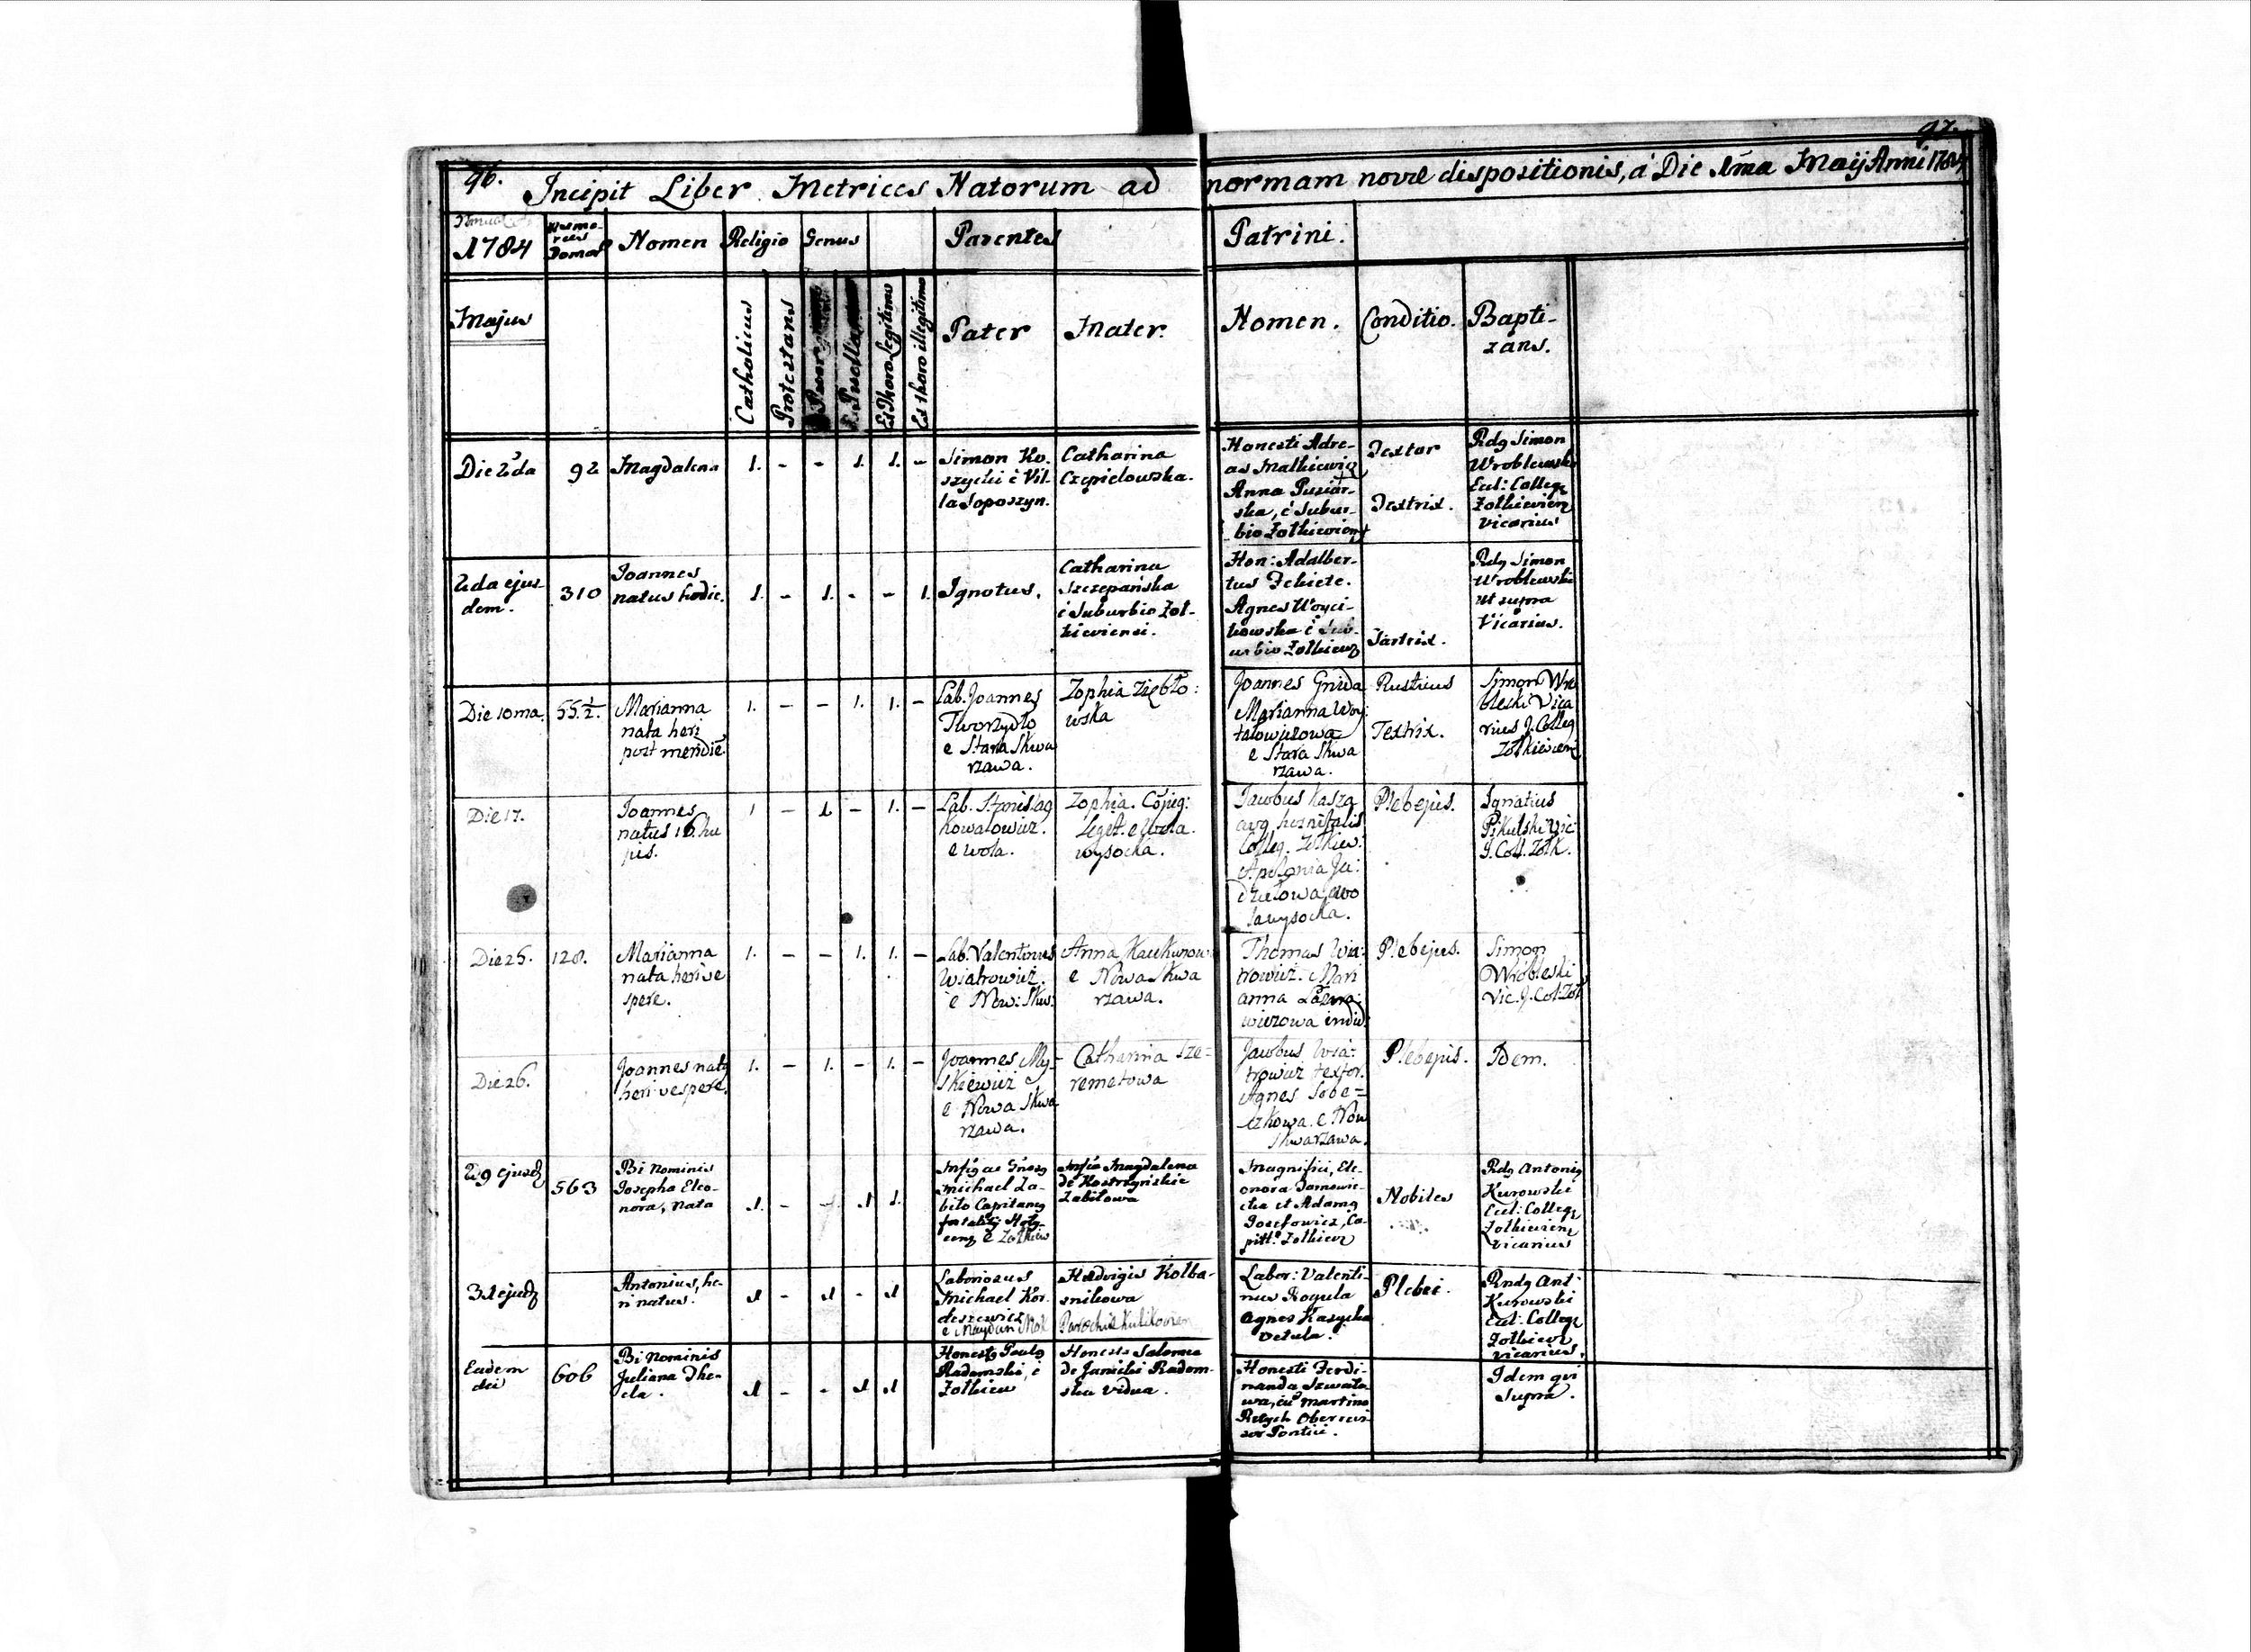 96.
97.
Incipit Liber Metrices Natorum ad normam novæ dispositionis, á Die 1ma Maij Anni 1784
1784
Numerus Domus
Nomen
Religio
Genus
Parentes
Patrini.
Majus
Catholicus
Protestans
Puer
Puella
Ex Thoro Legitimo
Ex thoro illegitimo
Pater
Mater.
Nomen.
Conditio.
Bapti-
zans.
Die 2da
92
Magdalena
1. - - 1. 1. -
Simon Ko-
szycki é Vil-
la Soposzyn.
Catharina
Czepielowska.
Honesti Adre-
as Malkiewicz
Anna
ska, é Subur-
bio Zolkiewien
Textor
Textrix.
Rdg Simon
Wroblewski
Eccl: Colleg
Zolkiewien
Vicarius
2da ejus
dem.
310
Joannes
natus hodie.
1. - 1. - - 1.
Ignotus.
Catharina
Szczepańska
é Suburbio Zol-
kieviensi.
Hon: Adalber-
tus
Agnes Woyci-
kowska é Sub-
urbio Zolkiew
Sartrix.
Rdg Simon
Wroblewski
Ut supra
Vicarius.
Die 10ma.
55.½.
Marianna
nata heri
post meridie
1. - - 1. 1. -
Lab. Joannes
Tworzydło
e Stara Skwa
rzawa.
Zophia Ziębło:
wska
Joannes Gnida
Marianna Woy:
e Stara Skwa
rzawa.
Rusticus
Textrix.
Simon Wro
bleski Vica
rius J. Colleg
Zołkiewien
Die 17.
Joannes
natus 16. hu
jus.
1 - 1. - 1. -
Lab. Stanislag
Kowalowicz.
e Wola.
Zophia. Cojug:
Legit. e Wola.
wysocka.
Jacobus Kasza
hospitalis
Colleg. Zołkiew:
Apolonia
wo
la wysocka.
Plebejus.
Ignatius
Pikulski Vic
J. Coll. Zołk.
Die 25.
128.
Marianna
nata heri ve
spere.
1. - - 1. 1. -
Lab. Valentinus
Wiatrowicz.
e Now: Skw:
Anna
e Nowa Skwa
rzawa.
Thomas Wia:
trowicz. Mari
anna
wiczowa
Plebejus.
Simon
Wróbleski
Vic. J. Col: Zoł
Die 26.
Joannes natg
heri vespere.
1. - 1. - 1. -
Joannes My-
śkiewicz
e Nowa Skwa
rzawa.
Catharina Sze=
remetowa
Jacobus Wia:
trowicz textor.
Agnes Sobe=
czkowa. e Now
Skwarzawa.
Plebejus.
Idem.
29 ejusd
563
Bi nominis
Josepha Eleo-
nora, nata
1. - - 1 1.
Michael Za-
biło Capitaneg
e Zołkiew
Magdalena
de
Zabiłowa
Magnifici, Ele-
onora
et Adamg
Josefowicz, Ca-
pitt: Zolkiew
Nobiles
Rdg Antonig
Kurowski
Eccl: Colleg
Zolkiewien
vicarius
31 ejusd
Antonius, he-
ri natus.
1 - 1 - 1
Laboriosus
Michael Kor-
deszewicz
e Maydan
Hedvigis Kolba-
snikowa
Parochiæ Kulikovien
Labor: Valenti-
nus Rogula
Agnes Kasycka
Vetula.
Plebei.
Rndg Ant
Kurowski
Eccl: Colleg
Zolkiew
vicarius.
Eadem
die
606
Bi nominis
Juliana The-
cla.
1 - - 1 1
Honestg Paulg
Radomski, é
Zolkiew
Honesta Salomea
de Janicki Radom-
ska vidua.
Honesti Ferdi-
nanda
Martino
Idem qui
Supra.